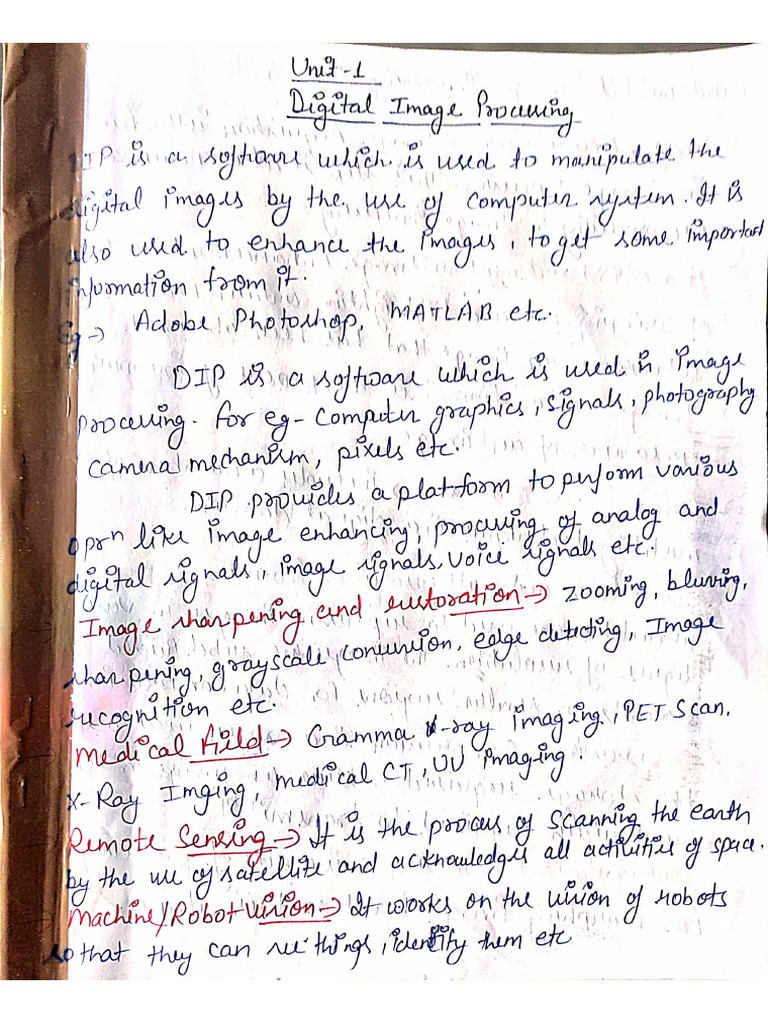 Unit-1
Digital Image Processing
DIP is a software which is used to manipulate the
digital images by the use of computer system. It is
also used to enhance the images, to get some important
information from it.
Eg → Adobe Photoshop, MATLAB etc.
DIP is a software which is used in image
processing. for eg - computer graphics, signals, photography
camera mechanism, pixels etc.
DIP provides a platform to perform various
oprⁿ like image enhancing, processing of analog and
digital signals, image signals, voice signals etc.
Image sharpening and restoration → zooming, blurring,
sharpening, grayscale conversion, edge detecting, Image
recognition etc.
Medical field → Gramma x-ray imaging, PET Scan,
X-Ray Imging, medical CT, UV imaging.
Remote Sensing → It is the process of scanning the earth
by the use of satellite and acknowledges all activities of space.
Machine/Robot vision → It works on the vision of robots
so that they can see things, identify them etc